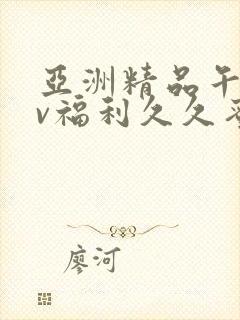 亞洲精品午
v福利久久
廖河